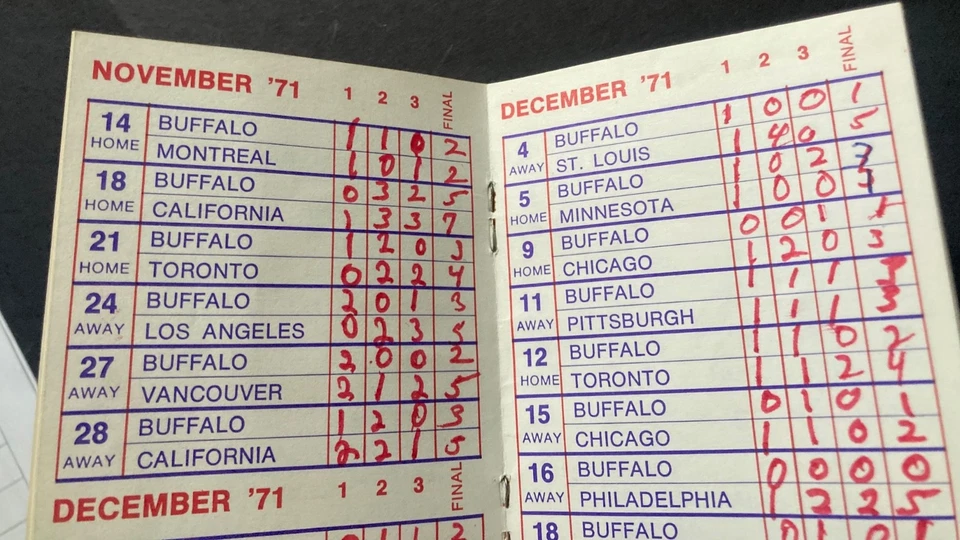 NOVEMBER '71 1 2 3 FINAL
14 BUFFALO 1 1 0 2
HOME MONTREAL 1 0 1 2
18 BUFFALO 0 3 2 5
HOME CALIFORNIA 1 3 3 7
21 BUFFALO 1 2 0 3
HOME TORONTO 0 2 2 4
24 BUFFALO 2 0 1 3
AWAY LOS ANGELES 0 2 3 5
27 BUFFALO 2 0 0 2
AWAY VANCOUVER 2 1 2 5
28 BUFFALO 1 2 0 3
AWAY CALIFORNIA 2 2 1 5
DECEMBER '71 1 2 3 FINAL
1 1 2
DECEMBER '71 1 2 3 FINAL
4 BUFFALO 1 0 0 1
AWAY ST. LOUIS 1 4 0 5
5 BUFFALO 1 0 2 3
HOME MINNESOTA 1 0 0
9 BUFFALO 0 0 1 1
HOME CHICAGO 1 2 0 3
11 BUFFALO 1 1 1 3
AWAY PITTSBURGH 1 1 1 3
12 BUFFALO 1 1 0 2
HOME TORONTO 1 1 2 4
15 BUFFALO 0 1 0 1
AWAY CHICAGO 1 1 0 2
16 BUFFALO 0 0 0 0
AWAY PHILADELPHIA 1 2 2 5
18 BUFFALO 0 1 0